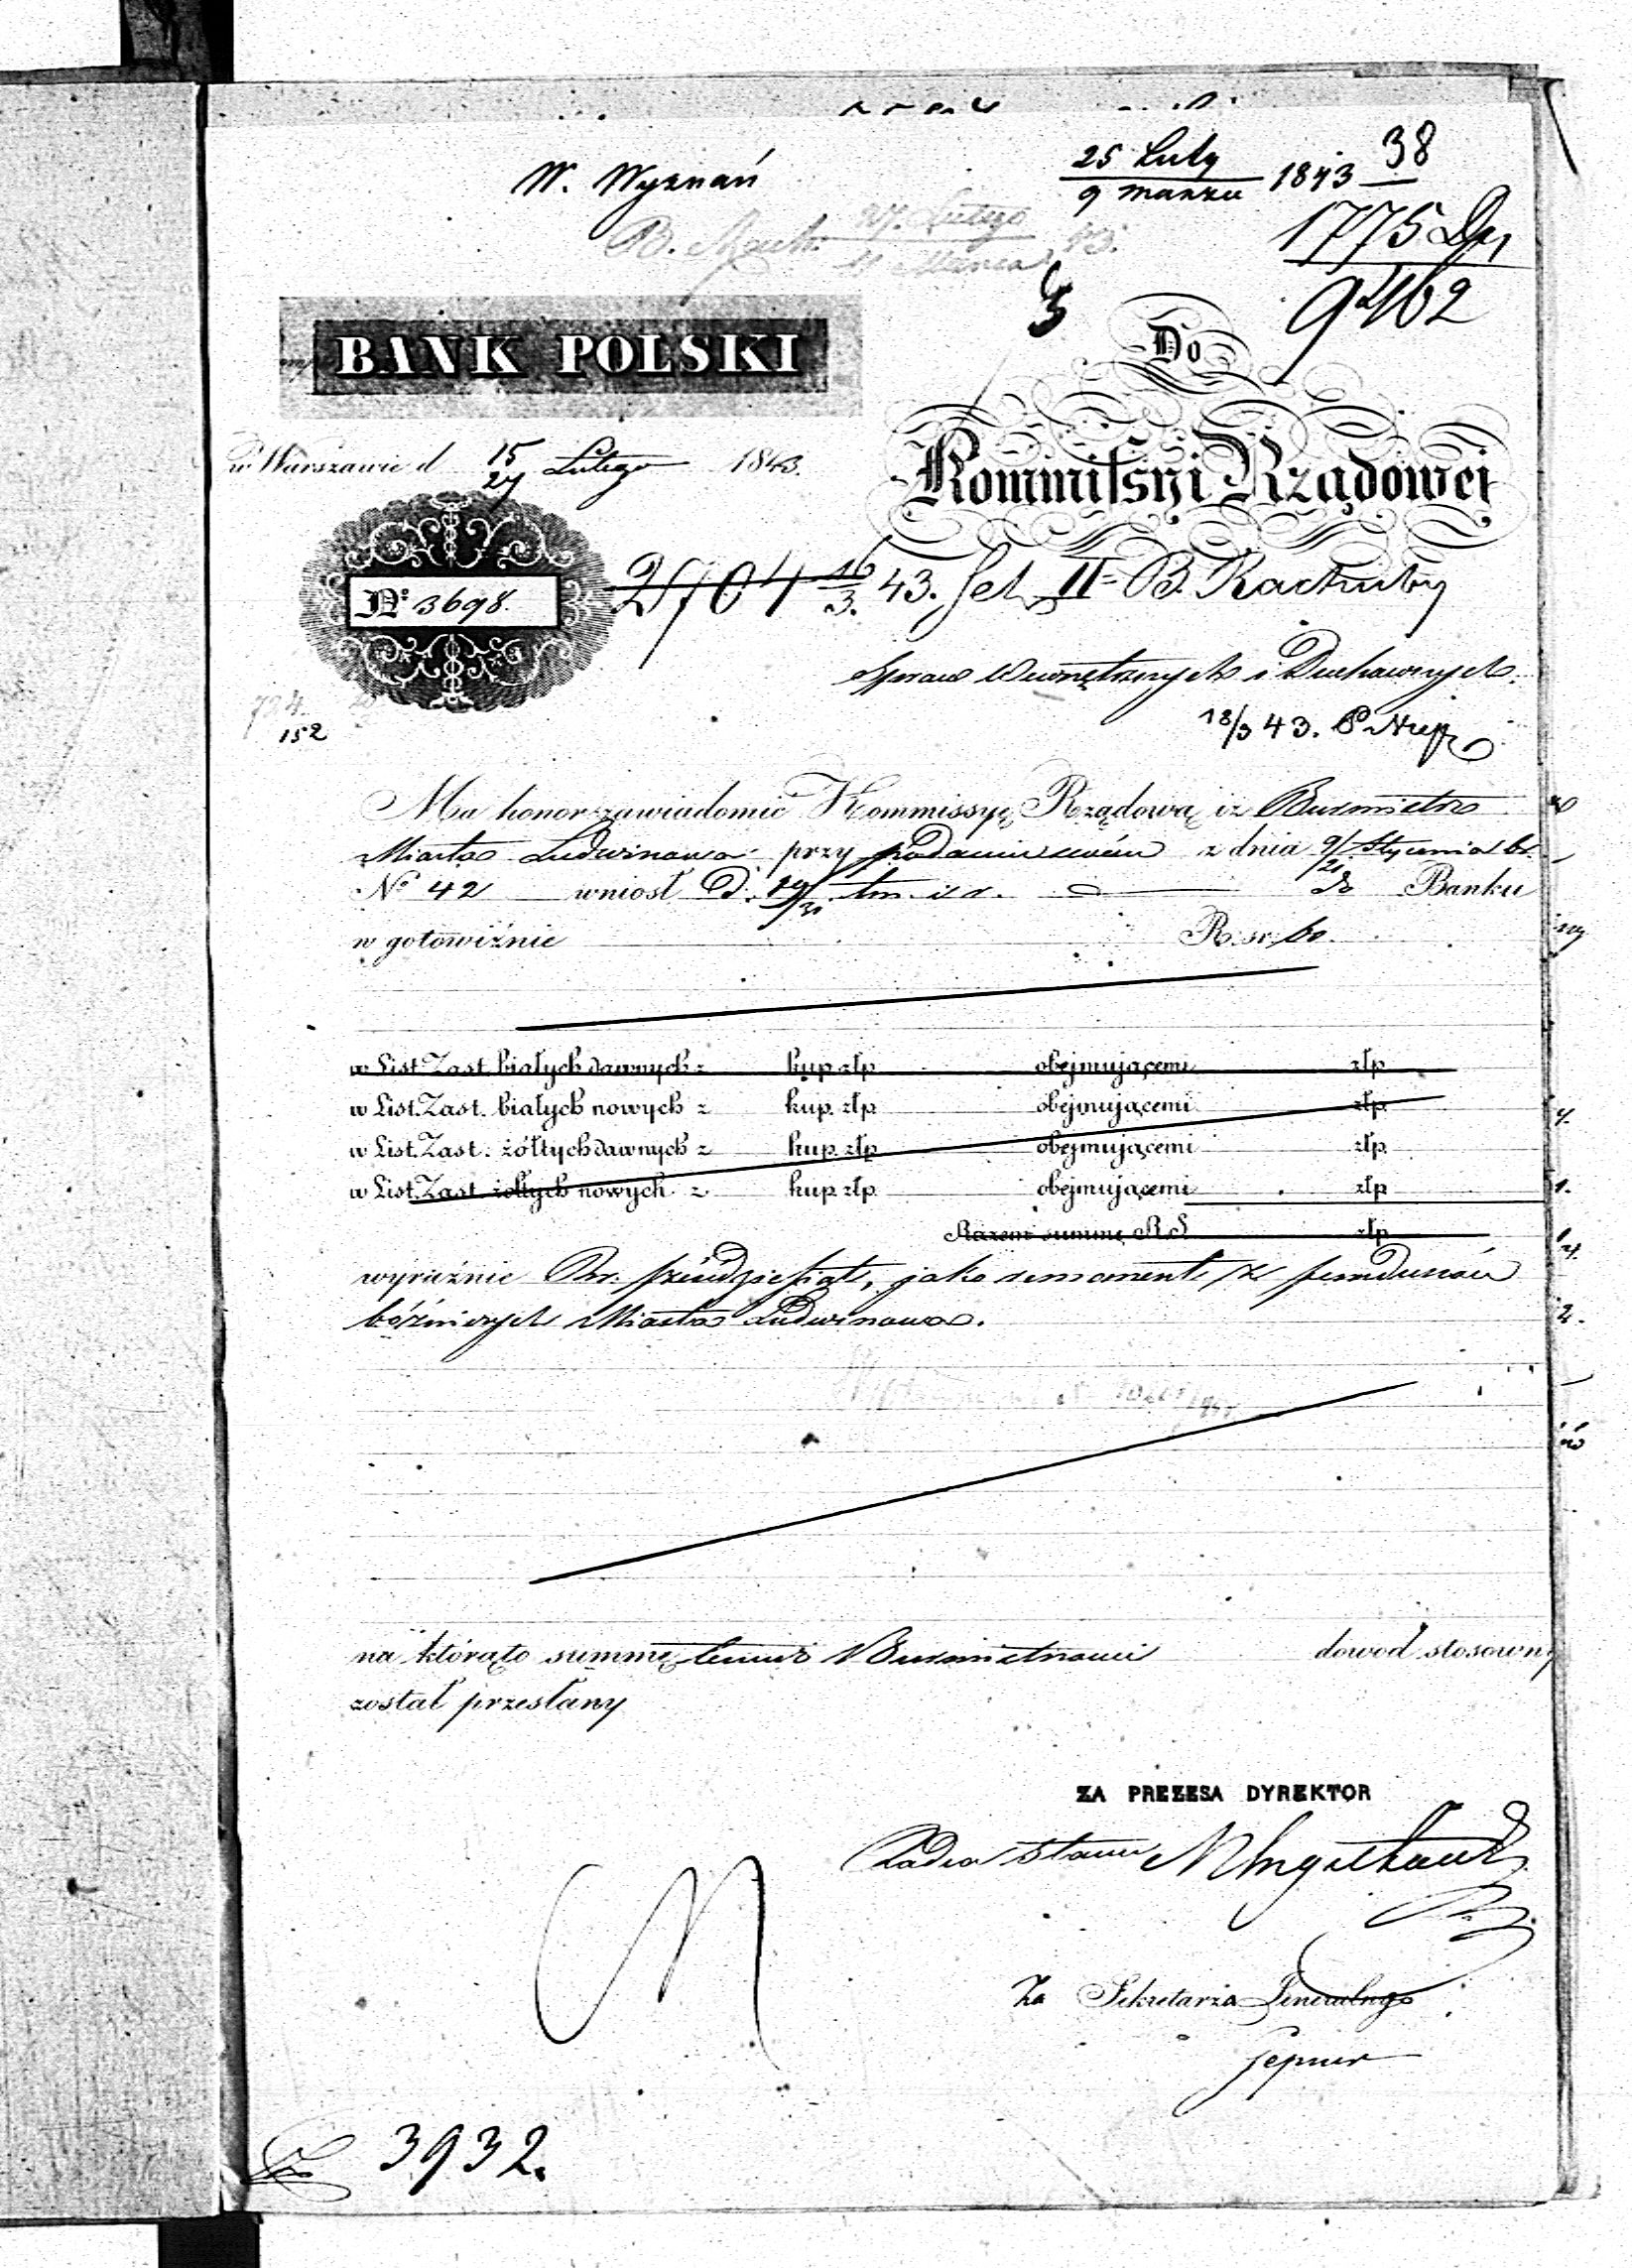 W. Wyznań
25 Luty
9 Marzu 1843
38
1775
9462
27. Lutego
BANK POLSKI
Do
Kommissyi Rządowej
w Warszawie d 15/27 Lutego 1843.
No 3698.
2704 16/3. 43. Sek II B. Rachuby
Spraw Wewnętrznych i Duchownych.
18/3 43.
152
Ma honor zawiadomić Kommissyę Rządową iż Burmistrz
Miasta Ludwinowa przy podaniu swém z dnia 9/21 Stycznia br.
No 42 wniosł D. 19/31 tm. i r. do Banku
w gotowiźnie R. sr. 60.
w List. Zast. białych dawnych z kup. złp. obejmującemi złp.
w List. Zast. białych nowych z kup. złp. obejmującemi złp.
w List. Zast. żółtych dawnych z kup. złp. obejmującemi złp.
w List. Zast. żółtych nowych z kup. złp. obejmującemi złp.
Razem summę R.S. złp.
wyraźnie Rsr. sześćdziesiąt, jako remanent z funduszów
bóźniczych Miasta Ludwinowa.
na którąto summę temuż Burmistrzowi dowod stosowny
został przesłany
ZA PREZESA DYREKTOR
Radca Stanu
Za Sekretarza Jeneralnego
3932.